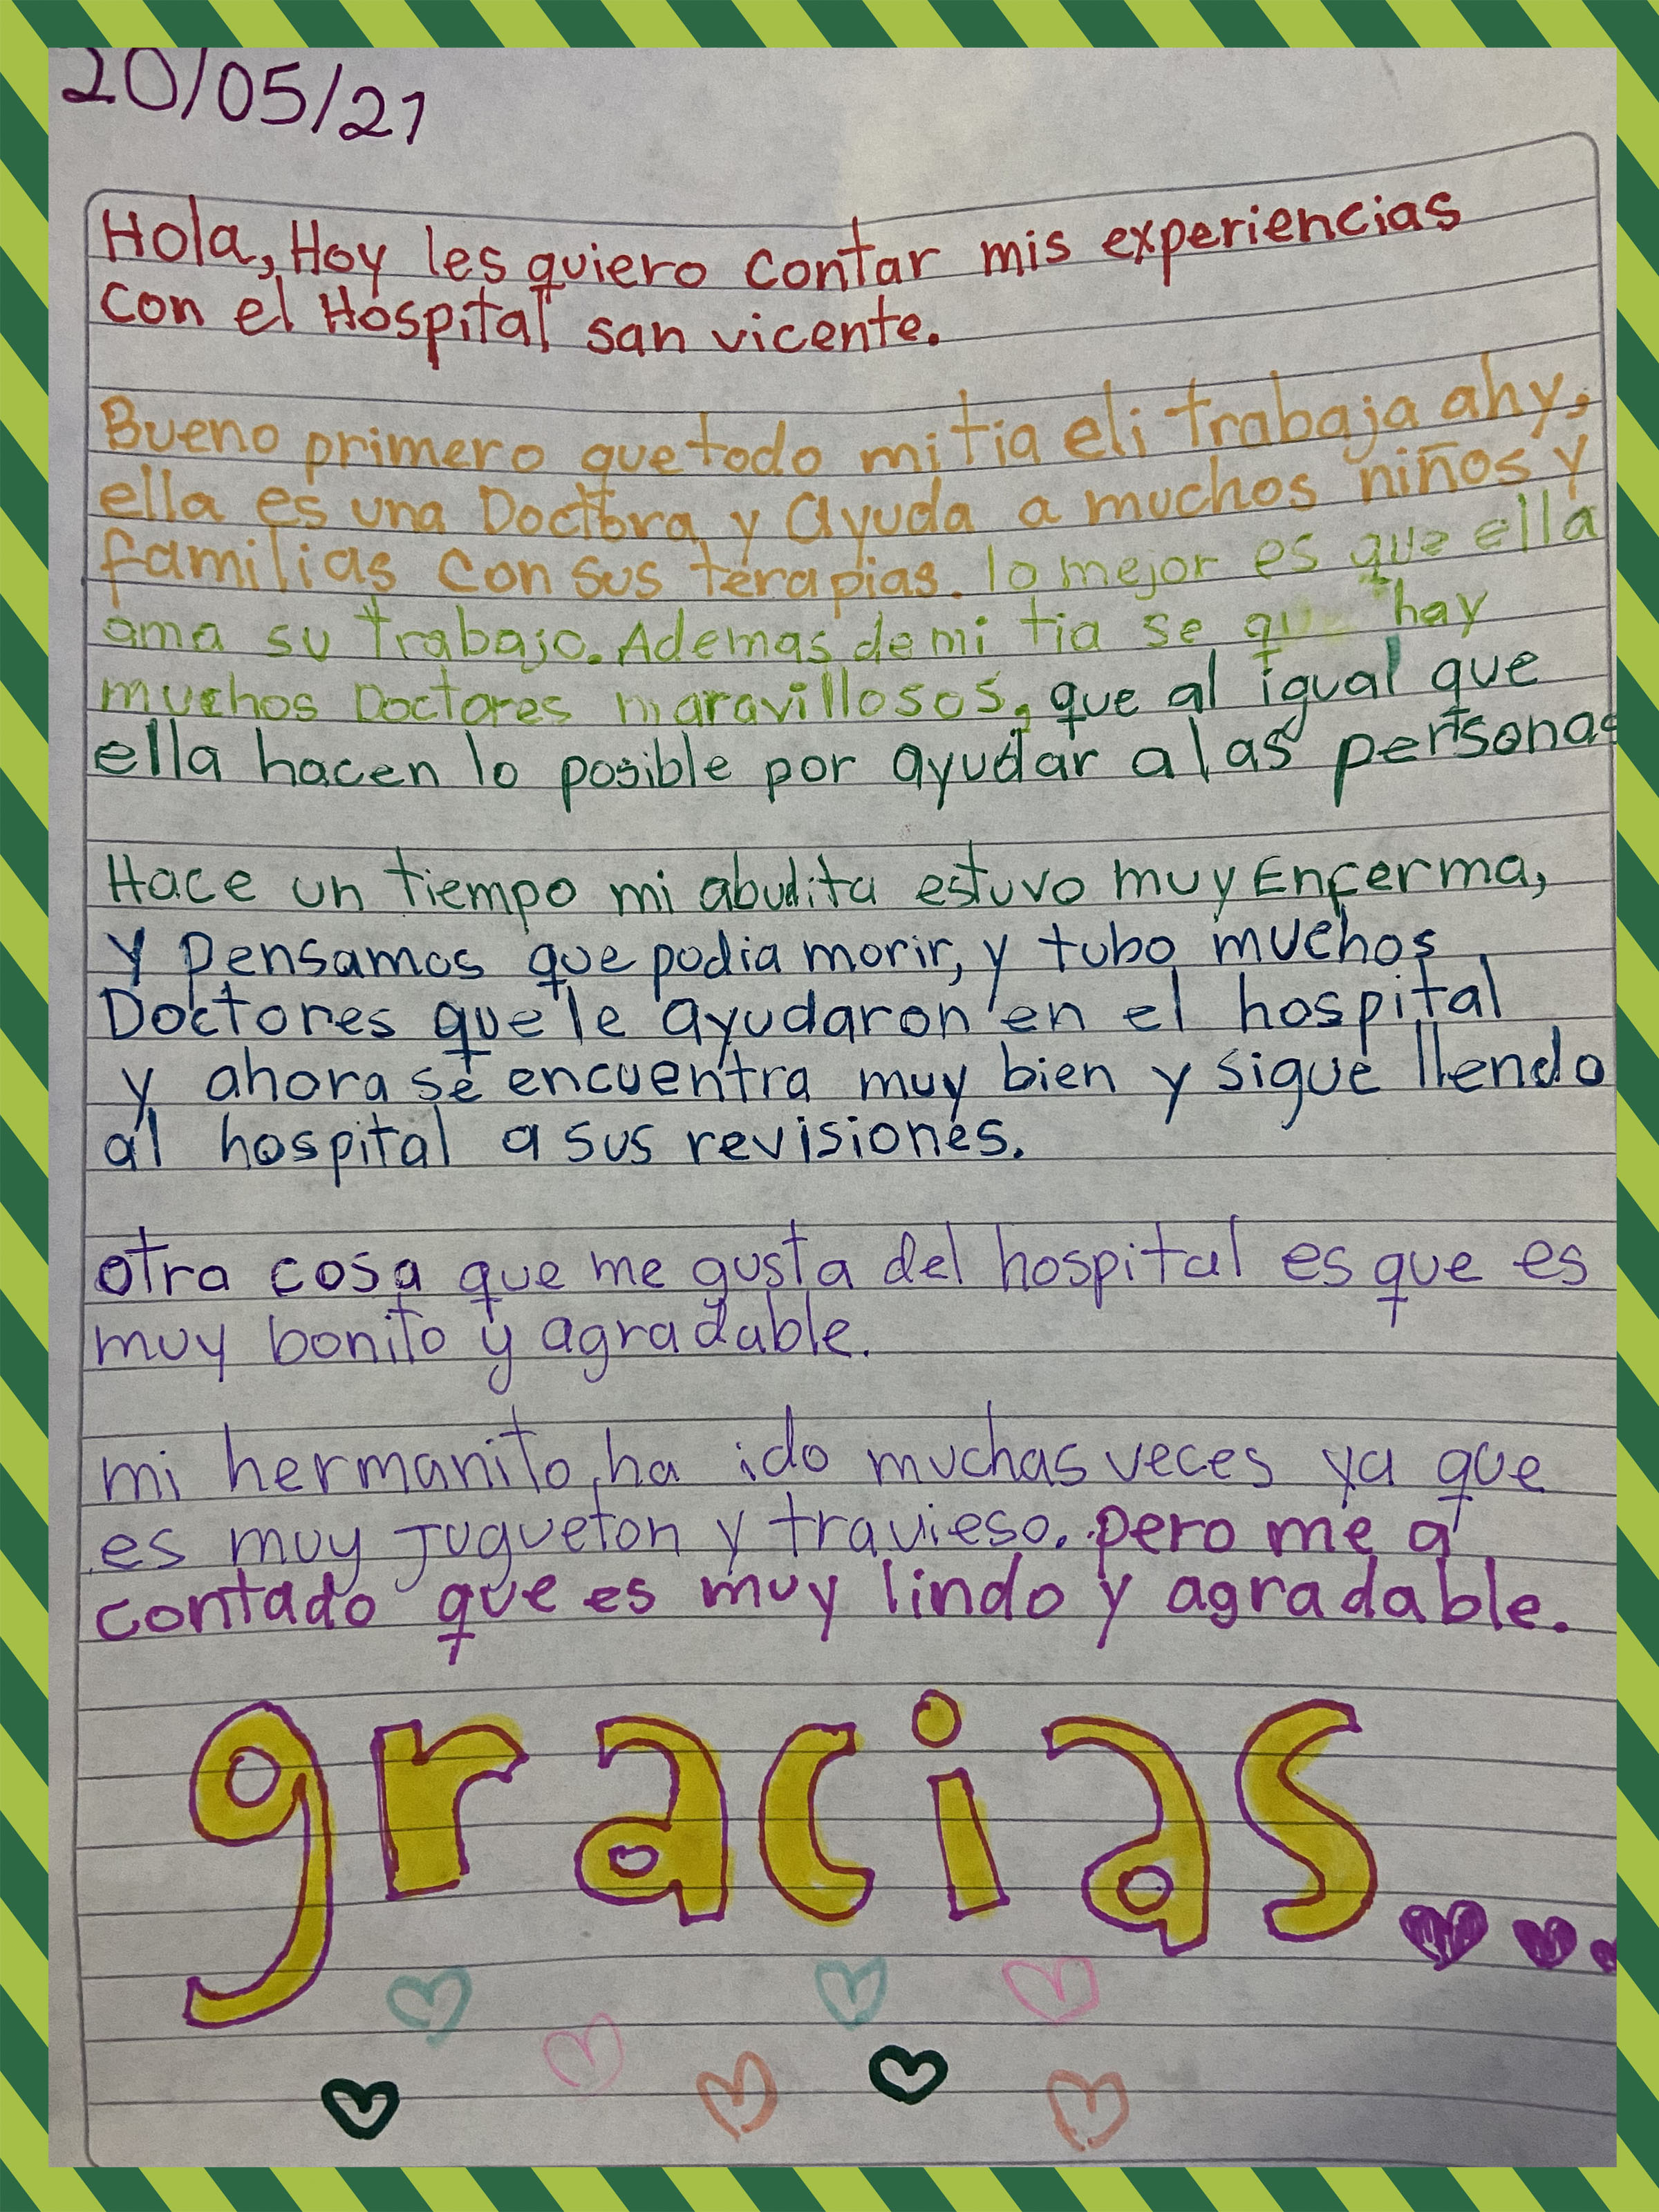 20/05/21
Hola, Hoy les quiero contar mis experiencias
con el Hospital san vicente.
Bueno primero que todo mi tia eli trabaja ahy,
ella es una Doctora y ayuda a muchos niños y
familias con sus terapias. lo mejor es que ella
ama su trabajo. Ademas de mi tia se que hay
muchos Doctores maravillosos, que al igual que
ella hacen lo posible por ayudar a las personas
Hace un tiempo mi abulita estuvo muy Enferma,
y pensamos que podia morir, y tubo muchos
Doctores que le ayudaron en el hospital
y ahora se encuentra muy bien y sigue llendo
al hospital a sus revisiones.
otra cosa que me gusta del hospital es que es
muy bonito y agradable.
mi hermanito ha ido muchas veces ya que
es muy Jugueton y travieso. pero me a
contado que es muy lindo y agradable.
gracias